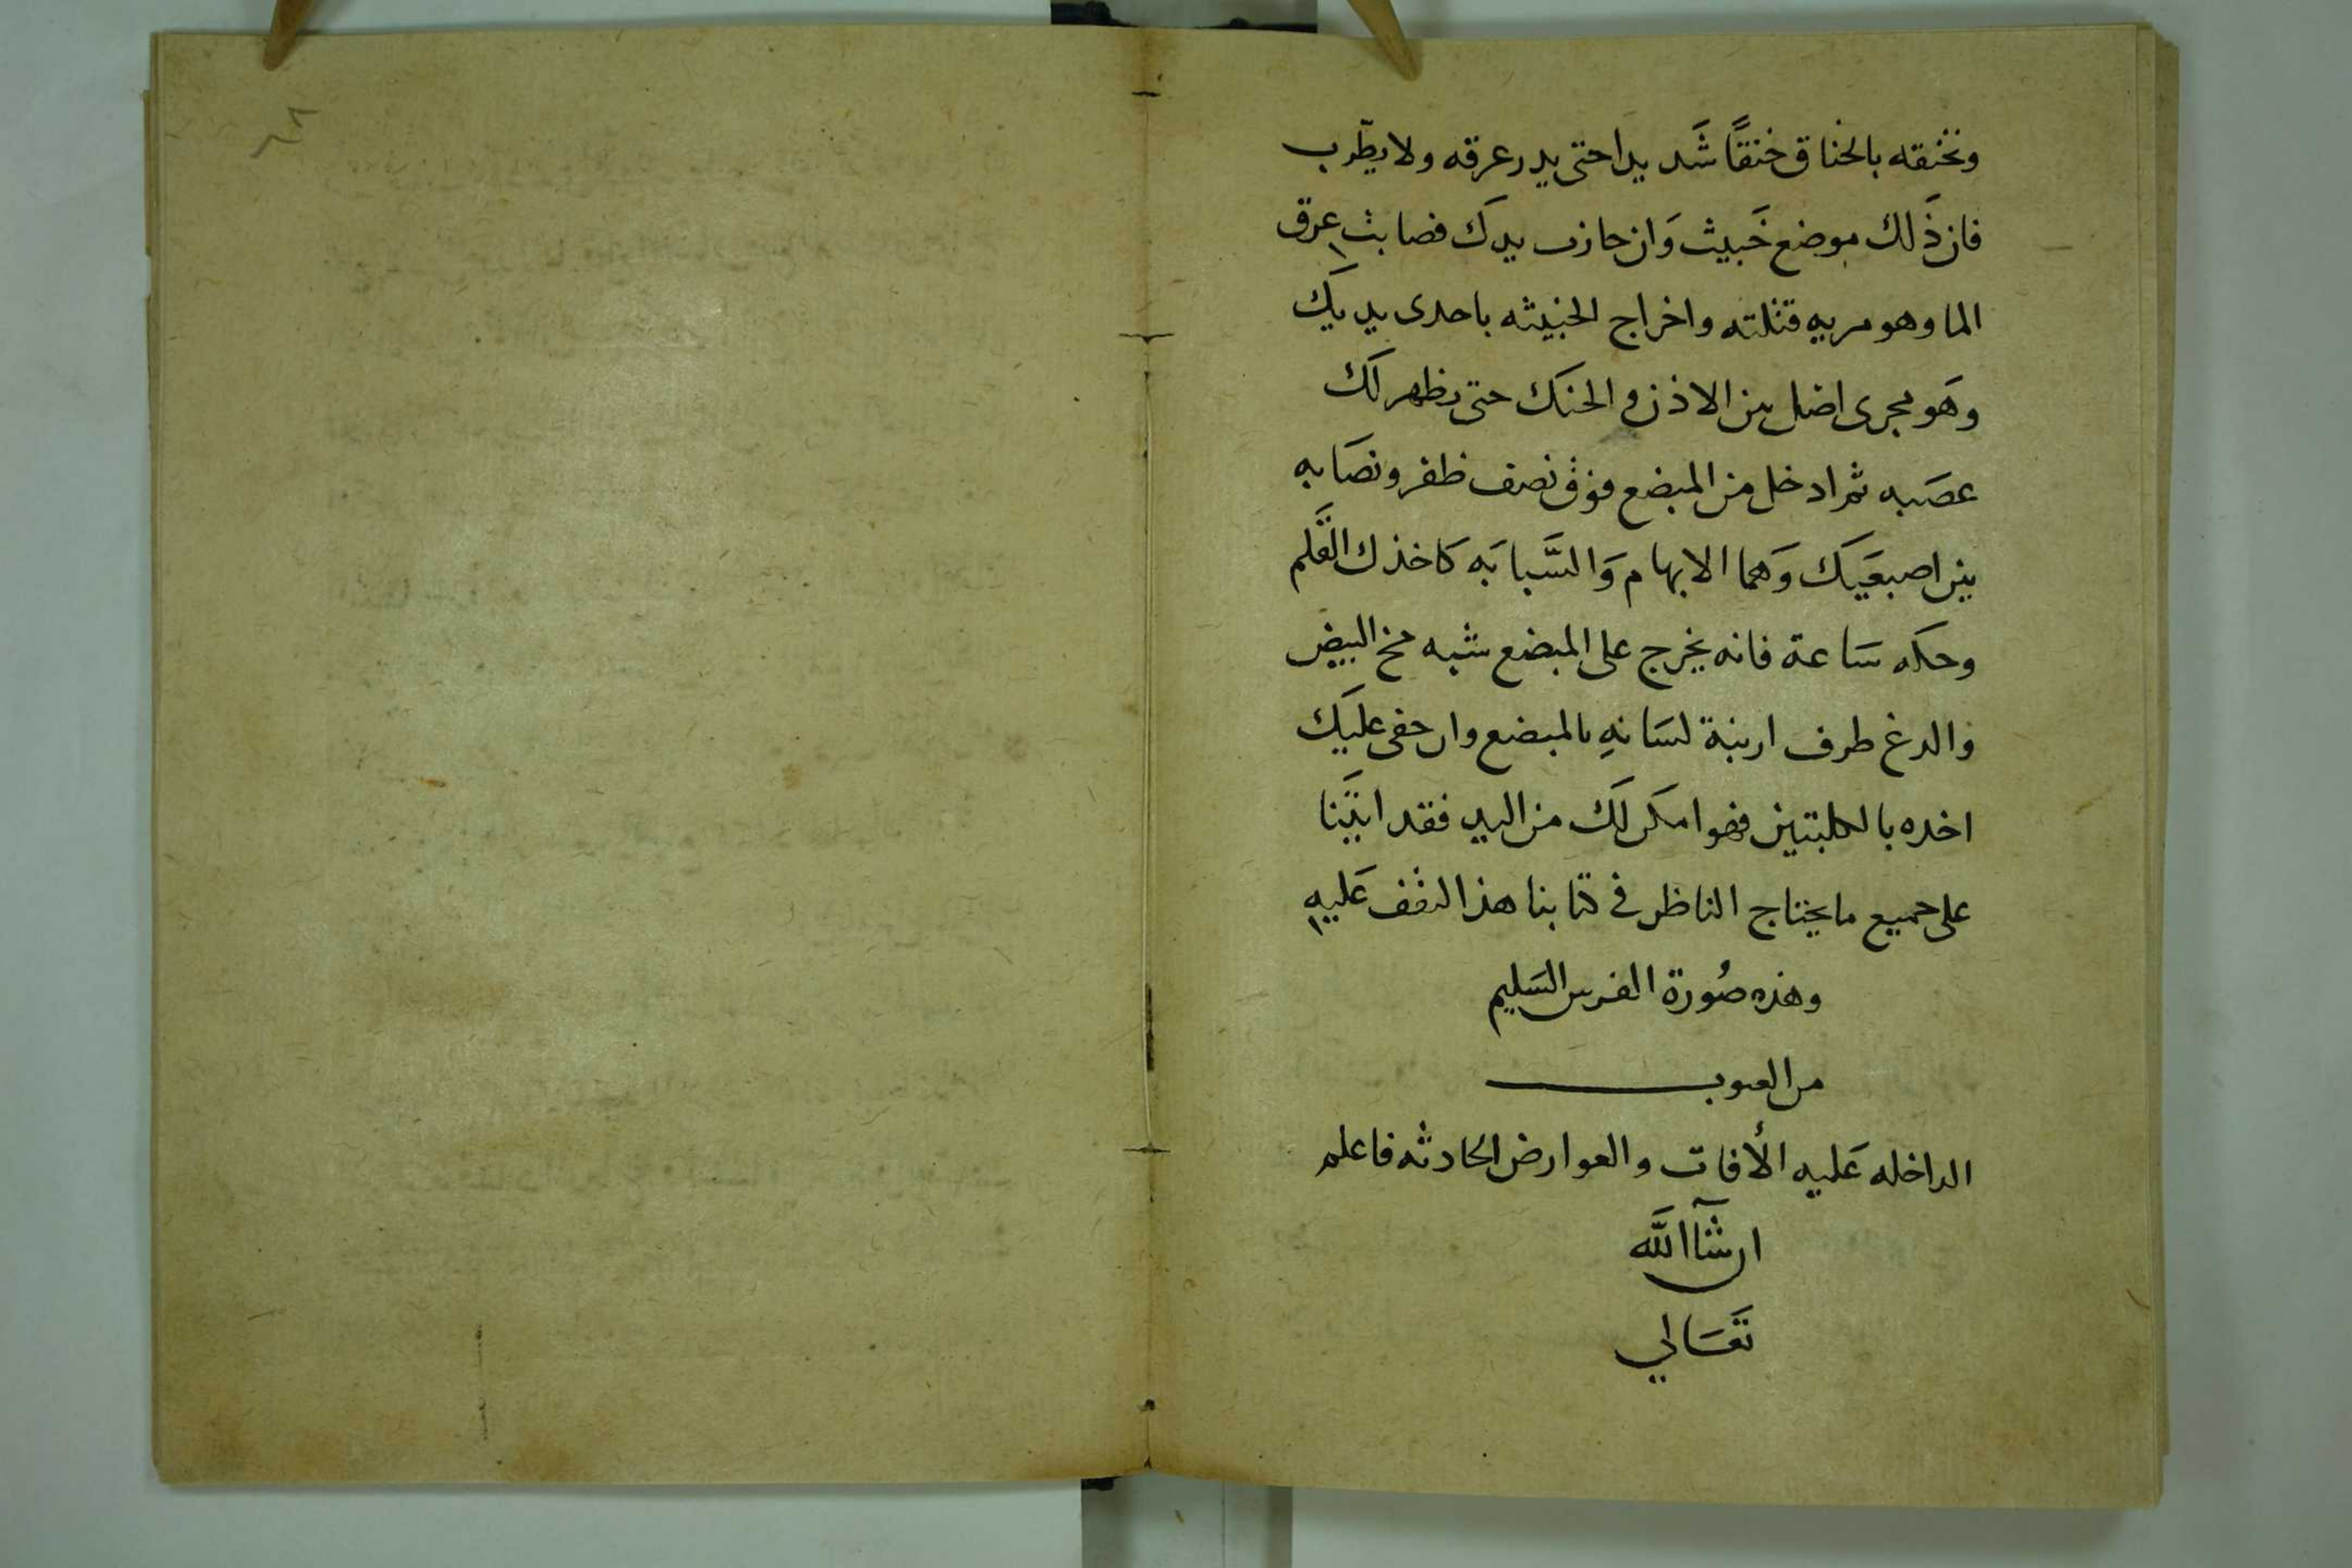 وتخنقه بالخناق خنقًا شَديدا حتى يدر عرقه ولا يطرب
فان ذَلك موضع خَبيث وَان حازت يدك فصابت عرق
الما وهو مريه قتلته واخراج الخبيثه باحدى يديك
وهَو مجرى اضل بين الاذن والحنَك حتى يظهر لَك
عصَبه ثم ادخل من المبضع فوق نصف ظفر ونصَابه
بين اصبعَيك وَهما الابهام وَالسَّبابَه كَاخذك القَلم
وحكه سَاعة فانه يخرج على المبضع شبه مخ البيض
والدغ طرف ارنبة لسَانهِ بالمبضع وان خفى عليَك
اخده بالكلبتين فهو امكن لَك من اليد فقد اتيَنا
على جميع ما يحتاج الناظر فى كتابنا هذا ليقف عَليه
وهذه صُورة الفرس السَليم
من العيوب
الداخله عَليه الأفات والعوارض الحادثه فاعلم
ان شآ الله
تعَالي